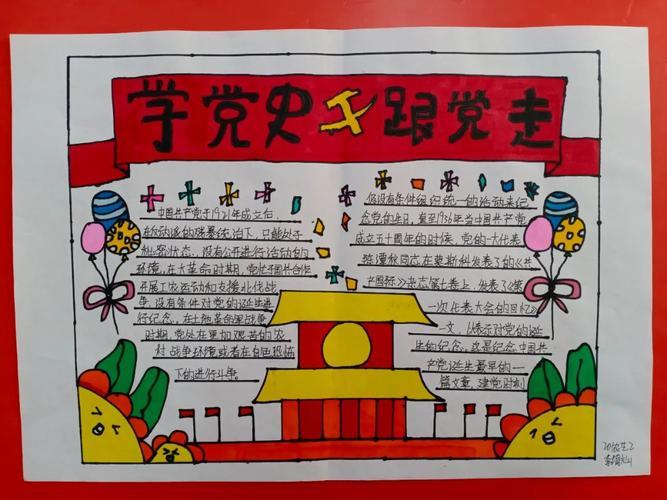 学党史跟党走
中国共产党于1921年成立后，
在反动派的残暴统治下，只能处于
秘密状态，没有公开进行活动的
环境，在大革命时期，党忙于国共合作
开展工农运动和支援北伐战
争，没有条件对党的诞生进
行纪念，在土地革命里战争
时期，党处在更加艰苦的农
村战争环境或者在白色恐怖
下的进行斗争。
但没有条件组织统一的活动来纪
念党的生日，直至1936年当中国共产党
成立五十周年的时候，党的一大代表
陈潭秋同志在莫斯科发表了的《共
产国际》杂志第七卷上，发表了《第
一次代表大会的回忆》
一文，以表示对党的诞
生的纪念。这是纪念中国共
产党诞生最早的一
篇文章，建党时刻